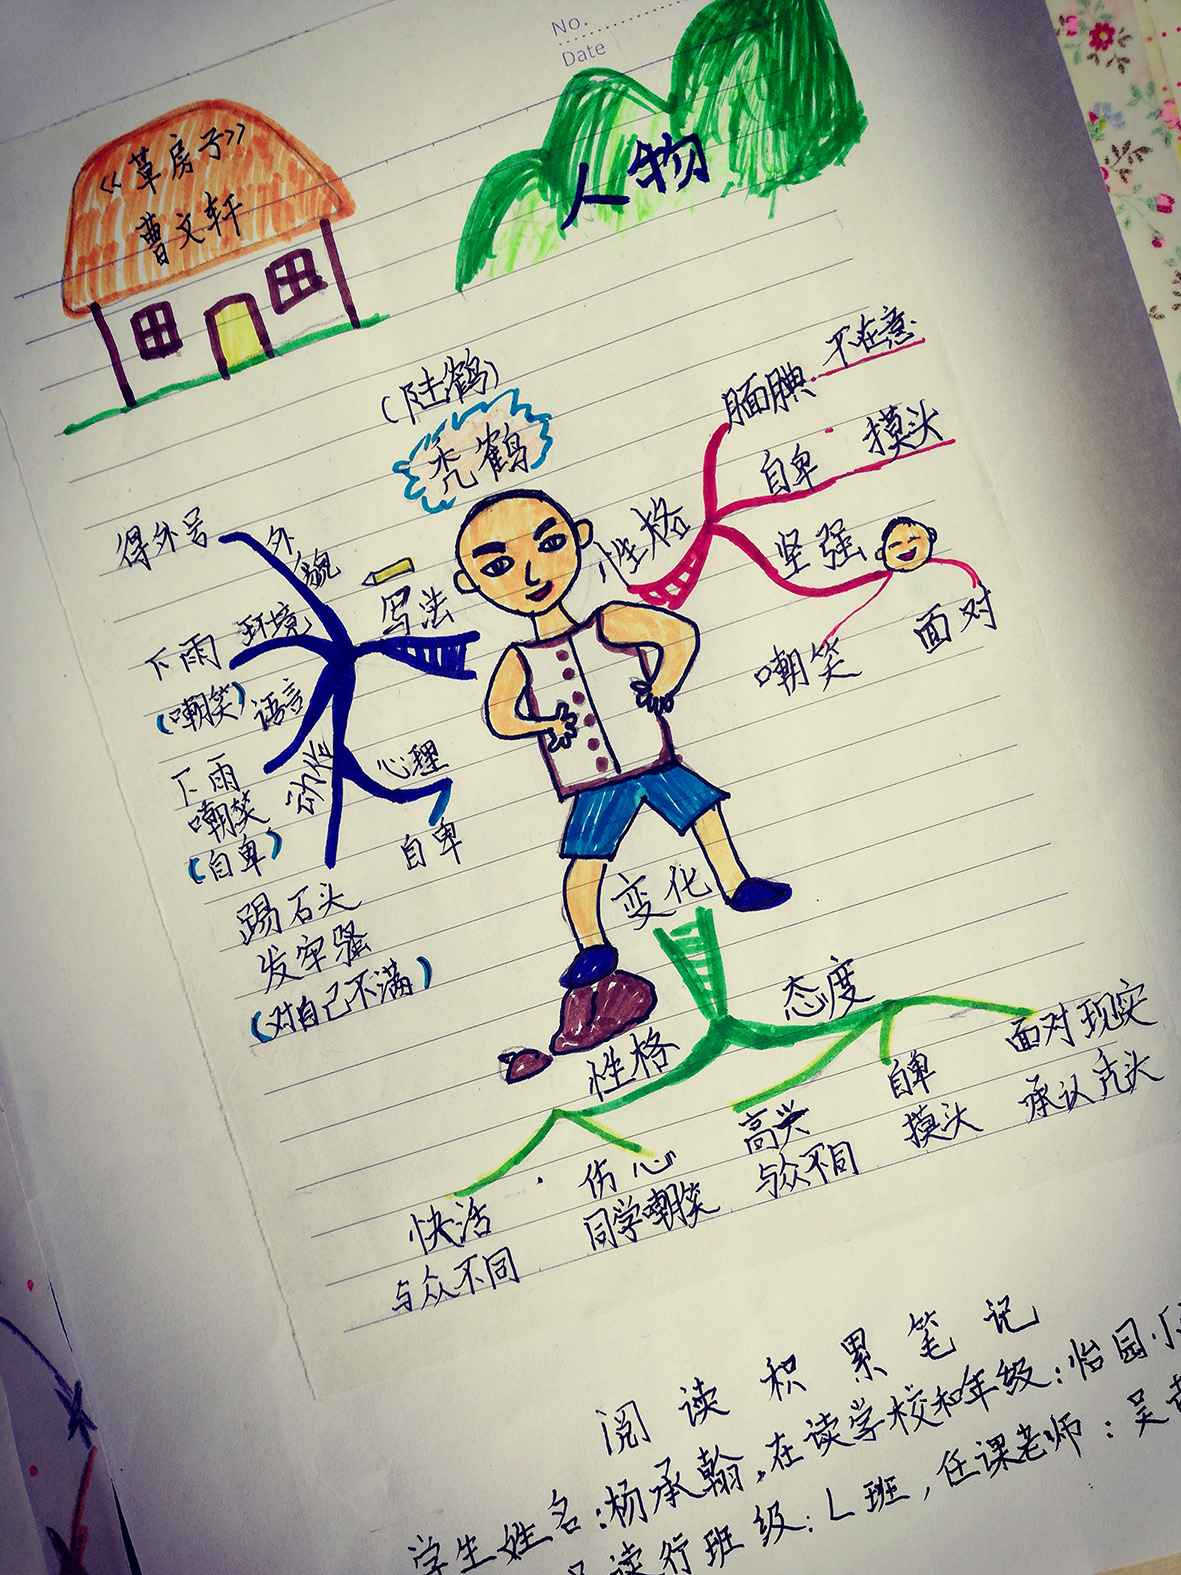 No.
Date
《草房子》
曹文轩
人物
(陆鹤)
秃鹤
性格
腼腆 不在意
自卑 摸头
坚强
嘲笑 面对
写法
得外号 外貌
下雨 环境
(嘲笑) 语言
下雨
嘲笑
(自卑)
动作
心理
自卑
踢石头
发牢骚
(对自己不满)
变化
性格
快活
与众不同
伤心
同学嘲笑
态度
高兴
与众不同
自卑
摸头
面对现实
承认秃头
阅读积累笔记
学生姓名：杨承翰，在读学校和年级：怡园小
读行班级：L班，任课老师：吴